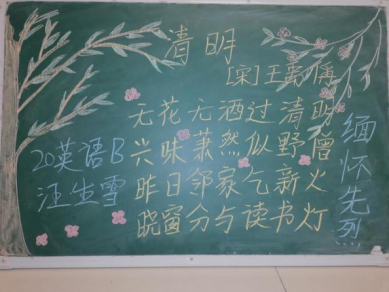 清明
[宋]王禹偁
无花无酒过清明
兴味萧然似野僧
昨日邻家乞新火
晓窗分与读书灯
20英语B
汪生雪
缅怀先烈